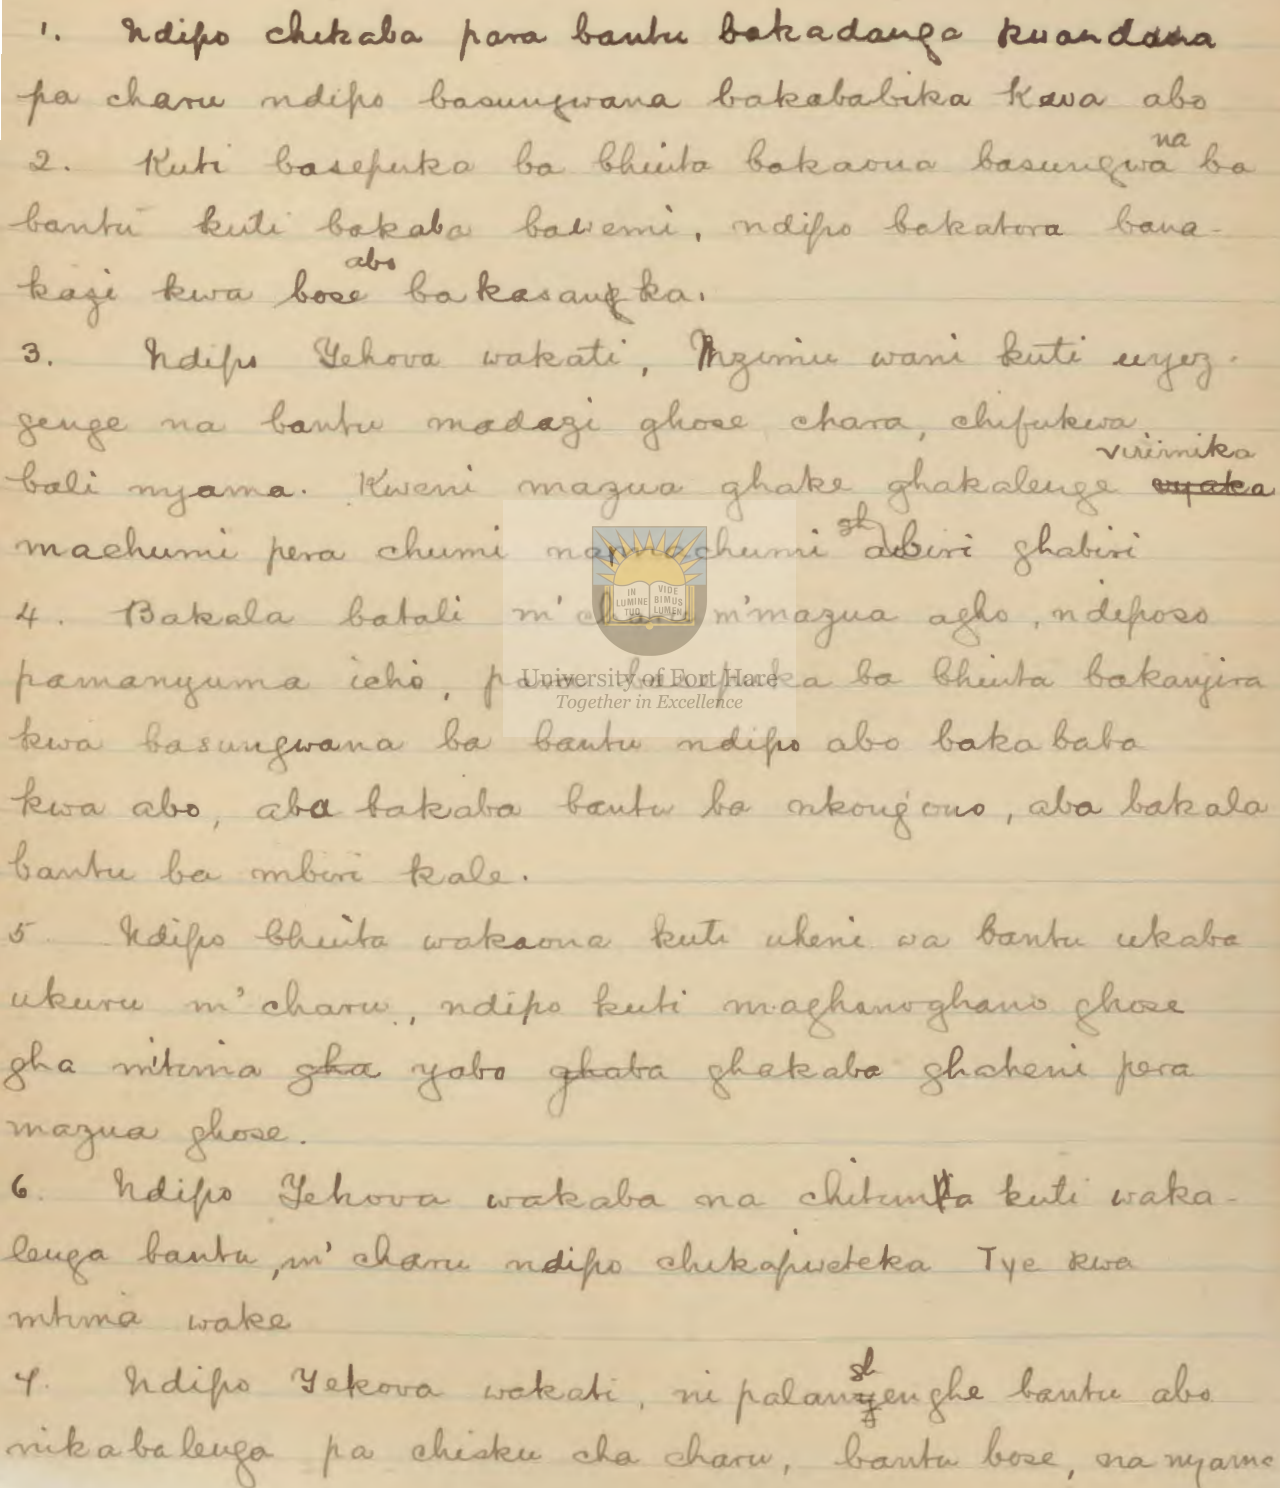 1. Ndipo chikaba para bantu bakadanga kuandana
pa charu ndipo basungwana bakababika kwa abo
2. Kuti basepuka ba Chiuta bakaona basungwana ba
bantu kuti bakaba bawemi, ndipo bakatora bana-
kazi kwa bose abo bakasangka.
3. Ndipo Yehova wakati, Mzimu wani kuti uyez-
genge na bantu madazi ghose chara, chifukwa
bali nyama. Kweni mazua ghake ghakalenge virimika
machumi pera chumi na machumi ghabiri ghabiri
4. Bakala batali m'charu m'mazua agho, ndiposo
pamanyuma icho, para basepuka ba Chiuta bakanjira
kwa basungwana ba bantu ndipo abo bakababa
kwa abo, aba bakaba bantu ba nkongono, aba bakala
bantu ba mbiri kale.
5 Ndipo Chiuta wakaona kuti uheni wa bantu ukaba
ukuru m'charu, ndipo kuti maghanoghano ghose
gha mtima gha yabo ghaba ghakaba ghaheni pera
mazua ghose.
6. Ndipo Yehova wakaba na chitima kuti waka-
lenga bantu, m'charu ndipo chikapweteka Iye kwa
mtima wake
7. Ndipo Yehova wakati, ni palanghenghe bantu abo
nikabalenga pa chisku cha charu, bantu bose, na nyama
IN LUMINE TUO VIDE BIMUS LUMEN
University of Fort Hare
Together in Excellence